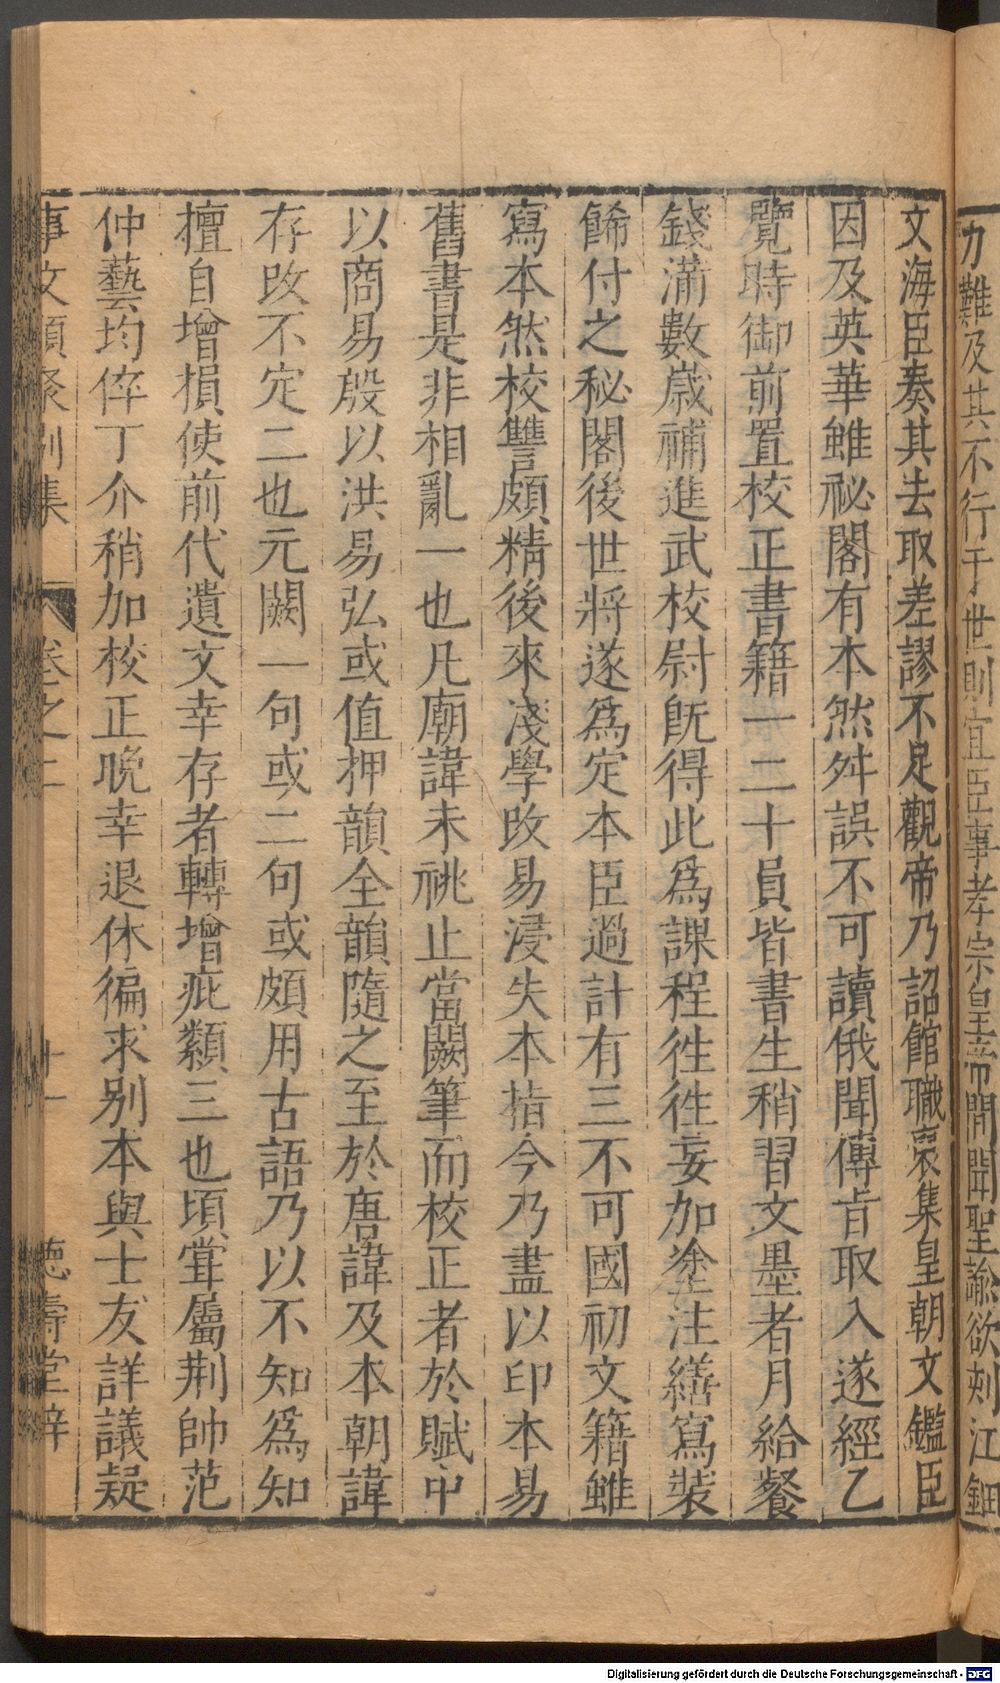 力難及其不行于世則宜臣事孝宗皇帝間聞聖諭欲刻江鈿
文海臣奏其去取差謬不足觀帝乃詔館職裒集皇朝文鑑臣
因及英華雖祕閣有本然舛誤不可讀俄聞傳旨取入遂經乙
覽時御前置校正書籍一二十員皆書生稍習文墨者月給餐
錢滿數歲補進武校尉旣得此爲課程徃徃妄加塗注繕寫裝
餙付之秘閣後世將遂爲定本臣過計有三不可國初文籍雖
寫本然校讐頗精後來淺學改易浸失本指今乃盡以印本易
舊書是非相亂一也凡廟諱未祧止當闕筆而校正者於賦中
以商易殷以洪易弘或值押韻全韻隨之至於唐諱及本朝諱
存改不定二也元闕一句或二句或頗用古語乃以不知爲知
擅自增損使前代遺文幸存者轉增疵纇三也頃甞屬荆帥范
仲藝均倅丁介稍加校正晩幸退休徧求别本與士友詳議疑
事文類聚别集 卷之二 十一 德壽堂梓
Digitalisierung gefördert durch die Deutsche Forschungsgemeinschaft - DFG